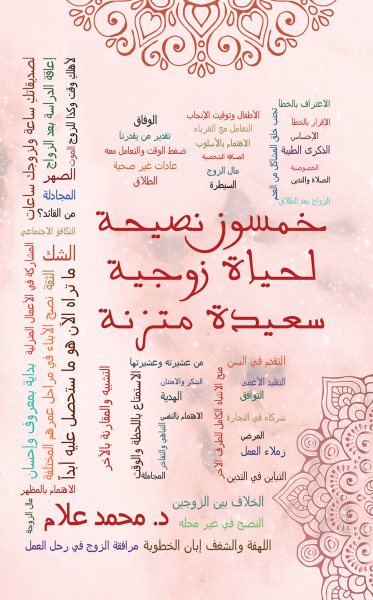 الاعتراف بالخطأ
الإقرار بالخطأ
الإحساس
الذكرى الطيبة
الخصوصية
الصلاة والتدين
الزواج بعد الطلاق
تجنب خلق المشاكل من العدم
الأطفال وتوقيت الإنجاب
التعامل مع الغرباء
الاهتمام بالأسلوب
الصداقة الشخصية
مال الزوج
السيطرة
الوفاق
تقدير من يقدرنا
ضغط الوقت والتعامل معه
عادات غير صحية
الطلاق
لأهلك وقت وكذا للزوج
الموت
إعاقة الدراسة بعد الزواج
لصديقاتك ساعة ولزوجك ساعات
الصهر
المجادلة
من القائد؟
التكافؤ الاجتماعي
خمسون نصيحة
لحياة زوجية
سعيدة متزنة
الشك
ما تراه الآن هو ما ستحصل عليه أبداً
الثقة
نصح الأبناء في مراحل عمرهم المختلفة
المشاركة في الأعمال المنزلية
بداية بمعروف وإحسان
التقدم في السن
التقليد الأعمى
التوافق
شركاء في التجارة
المرض
زملاء العمل
التباين في التدين
منح الانتباه الكامل للطرف الآخر
من عشيرته وعشيرتها
الشكر والامتنان
الهدية
الاهتمام بالنفس
التباهي والتفاخر
المجاملة
الاستمتاع باللحظة والوقت
التشبيه والمقارنة بالآخر
الاهتمام بالمظهر
مال الزوجة
الخلاف بين الزوجين
د. محمد علام
النصح في غير محله
اللهفة والشغف إبان الخطوبة
مرافقة الزوج في رحل العمل